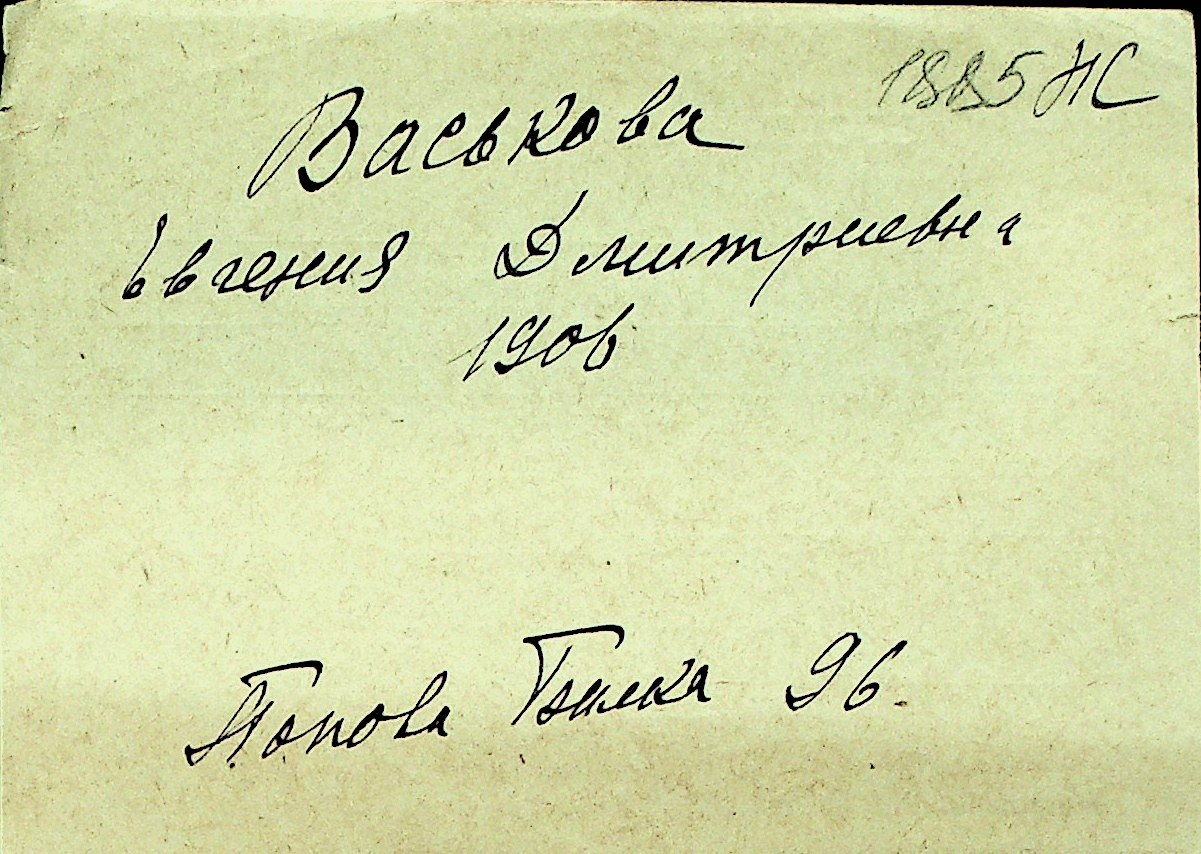 1885 НС
Васькова
Евгения Дмитриевна
1906
Попова Балка 96.